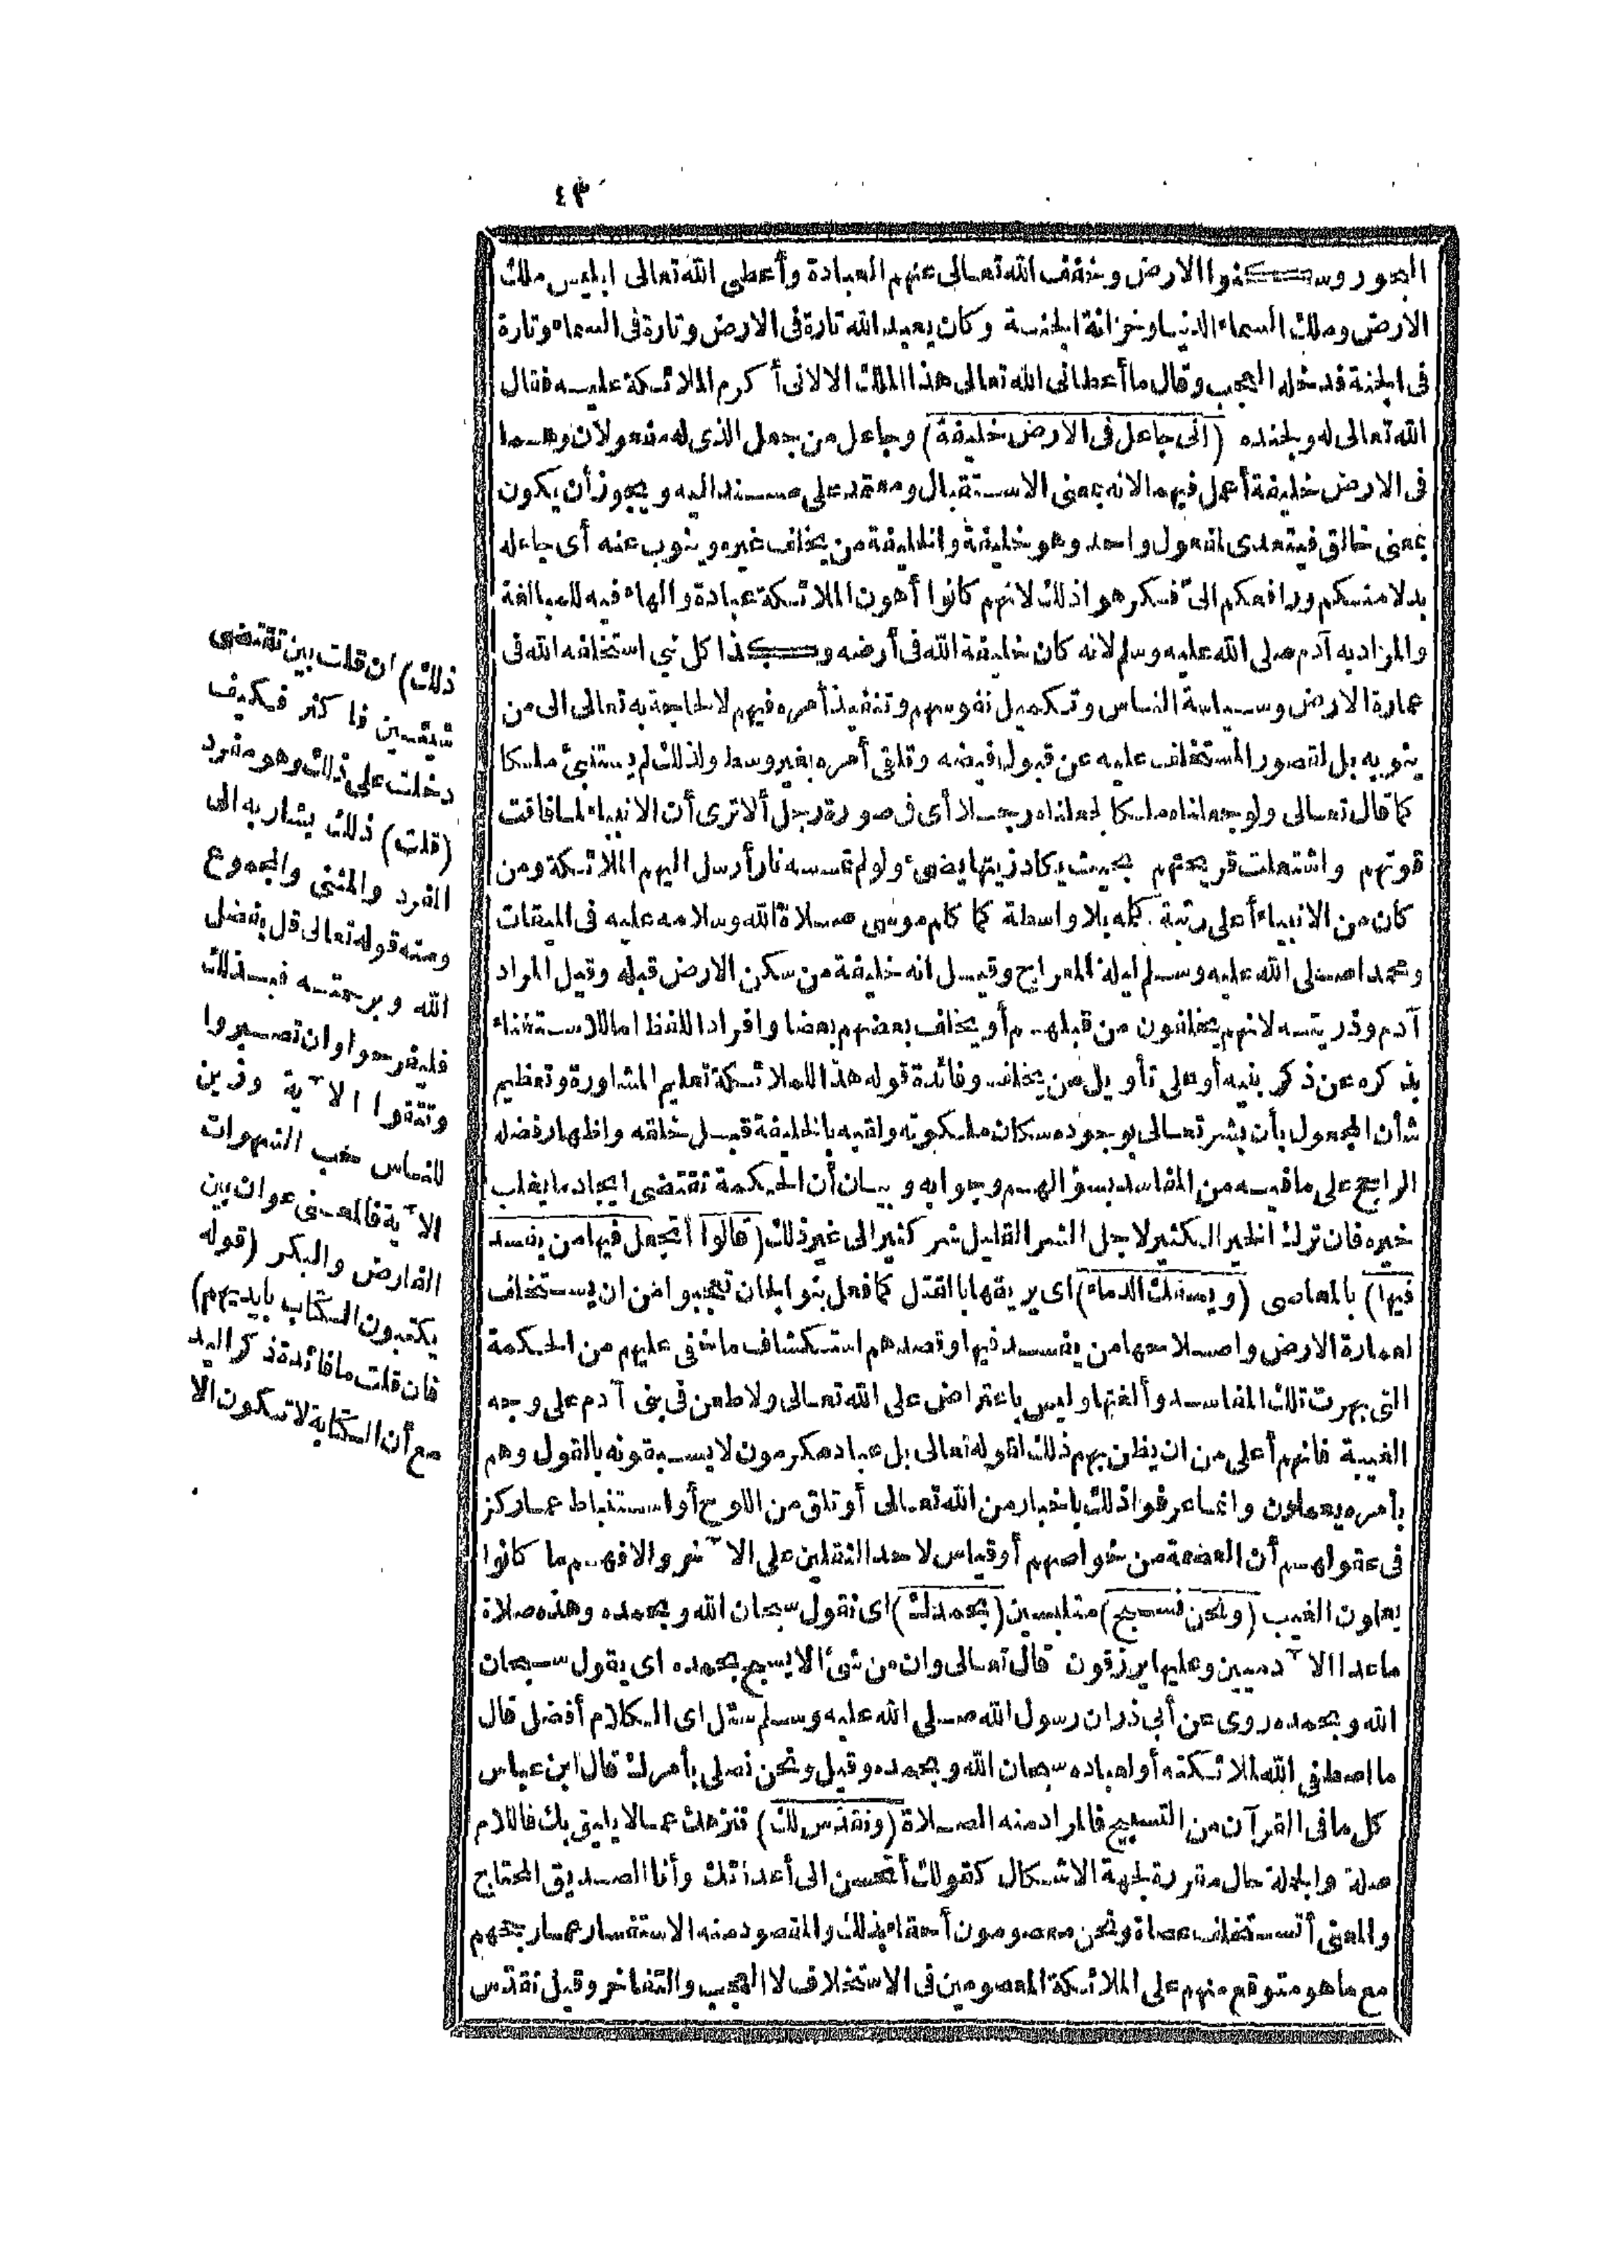 ٤٣
البحور وسكنوا الارض وخفف الله تعالى عنهم العبادة وأعطى الله تعالى ابليس ملك
الارض وملك السماء الدنيا وخزانة الجنة وكان يعبد الله تارة فى الارض وتارة فى السماء وتارة
فى الجنة فدخله العجب وقال ما أعطانى الله تعالى هذا الملك الا لانى أكرم الملائكة عليه فقال
الله تعالى له ولجنده (انى جاعل فى الارض خليفة) وجاعل من جعل الذى له مفعولان وهما
فى الارض خليفة أعمل فيهما لانه بمعنى الاستقبال ومعتمد على مسند اليه ويجوز أن يكون
بمعنى خالق فيتعدى لمفعول واحد وهو خليفة والخليفة من يخلف غيره وينوب عنه أى جاعله
بدلا منكم ورافعكم الىّ فكرهوا ذلك لانهم كانوا أهون الملائكة عبادة والهاء فيه للمبالغة
والمراد به آدم صلى الله عليه وسلم لانه كان خليفة الله فى أرضه وكذا كل نبى استخلفه الله فى
عمارة الارض وسياسة الناس وتكميل نفوسهم وتنفيذ أمره فيهم لا لحاجة به تعالى الى من
ينوبه بل لقصور المستخلف عليه عن قبول فيضه وتلقى أمره بغير وسط ولذلك لم يستنبئ ملكا
كما قال تعالى ولو جعلناه ملكا لجعلناه رجلا أى فى صورة رجل ألا ترى أن الانبياء لما فاقت
قوتهم واشتعلت قريحتهم بحيث يكاد زيتها يضىء ولو لم تمسسه نار أرسل اليهم الملائكة ومن
كان من الانبياء أعلى رتبة كله بلا واسطة كما كلم موسى صلاة الله وسلامه عليه فى الميقات
ومحمدا صلى الله عليه وسلم ليلة المعراج وقيل انه خليفة من سكن الارض قبله وقيل المراد
آدم وذريته لانهم يخلفون من قبلهم أو يخلف بعضهم بعضا وافراد اللفظ اما للاستغناء
بذكره عن ذكر بنيه أو على تأويل من يخلف وفائدة قوله هذا للملائكة تعليم المشاورة وتعظيم
شأن المجعول بأن بشر تعالى بوجوده سكان ملكوته ولقبه بالخليفة قبل خلقه واظهار فضله
الراجح على ما فيه من المفاسد بسؤالهم وجوابه وبيان أن الحكمة تقتضى ايجاد ما يغلب
خيره فان ترك الخير الكثير لاجل الشر القليل شر كثير الى غير ذلك (قالوا أتجعل فيها من يفسد
فيها) بالمعاصى (ويسفك الدماء) اى يريقها بالقتل كما فعل بنو الجان تعجبوا من ان يستخلف
لعمارة الارض واصلاحها من يفسد فيها وقصدهم استكشاف ما خفى عليهم من الحكمة
التى بهرت تلك المفاسد وألغتها وليس باعتراض على الله تعالى ولا طعن فى بنى آدم على وجه
الغيبة فانهم أعلى من ان يظن بهم ذلك لقوله تعالى بل عباد مكرمون لا يسبقونه بالقول وهم
بأمره يعملون وانما عرفوا ذلك باخبار من الله تعالى أو تلق من اللوح أو استنباط عما ركز
فى عقولهم أن العصمة من خواصهم أو قياس لاحد الثقلين على الآخر والا فهم ما كانوا
يعلمون الغيب (ونحن نسبح) متلبسين (بحمدك) اى نقول سبحان الله وبحمده وهذه صلاة
ماعدا الآدميين وعليها يرزقون قال تعالى وان من شئ الا يسبح بحمده اى يقول سبحان
الله وبحمده روى عن أبى ذر ان رسول الله صلى الله عليه وسلم سئل اى الكلام أفضل قال
ما اصطفى الله لملائكته أو لعباده سبحان الله وبحمده وقيل ونحن نصلى بأمرك قال ابن عباس
كل ما فى القرآن من التسبيح فالمراد منه الصلاة (ونقدّس لك) ننزهك عما لا يليق بك فاللام
صلة والجملة حال مقررة لجهة الاشكال كقولك أتحسن الى أعدائك وأنا الصديق المحتاج
والمعنى أتستخلف عصاة ونحن معصومون أحقاء بذلك والمقصود منه الاستفسار عما رجحهم
مع ما هو متوقع منهم على الملائكة المعصومين فى الاستخلاف لا العجب والتفاخر وقيل نقدّس
ذلك) ان قلت بين تقتضى
شيئين فاكثر فكيف
دخلت على ذلك وهو مفرد
(قلت) ذلك يشار به الى
المفرد والمثنى والمجموع
ومنه قوله تعالى قل بفضل
الله وبرحمته فبذلك
فليفرحوا وان تصبروا
وتتقوا الآية وزين
للناس حب الشهوات
الآية فالمعنى عوان بين
الفارض والبكر (قوله
يكتبون الكتاب بايديهم)
فان قلت ما فائدة ذكر اليد
مع أن الكتابة لا تكون الا